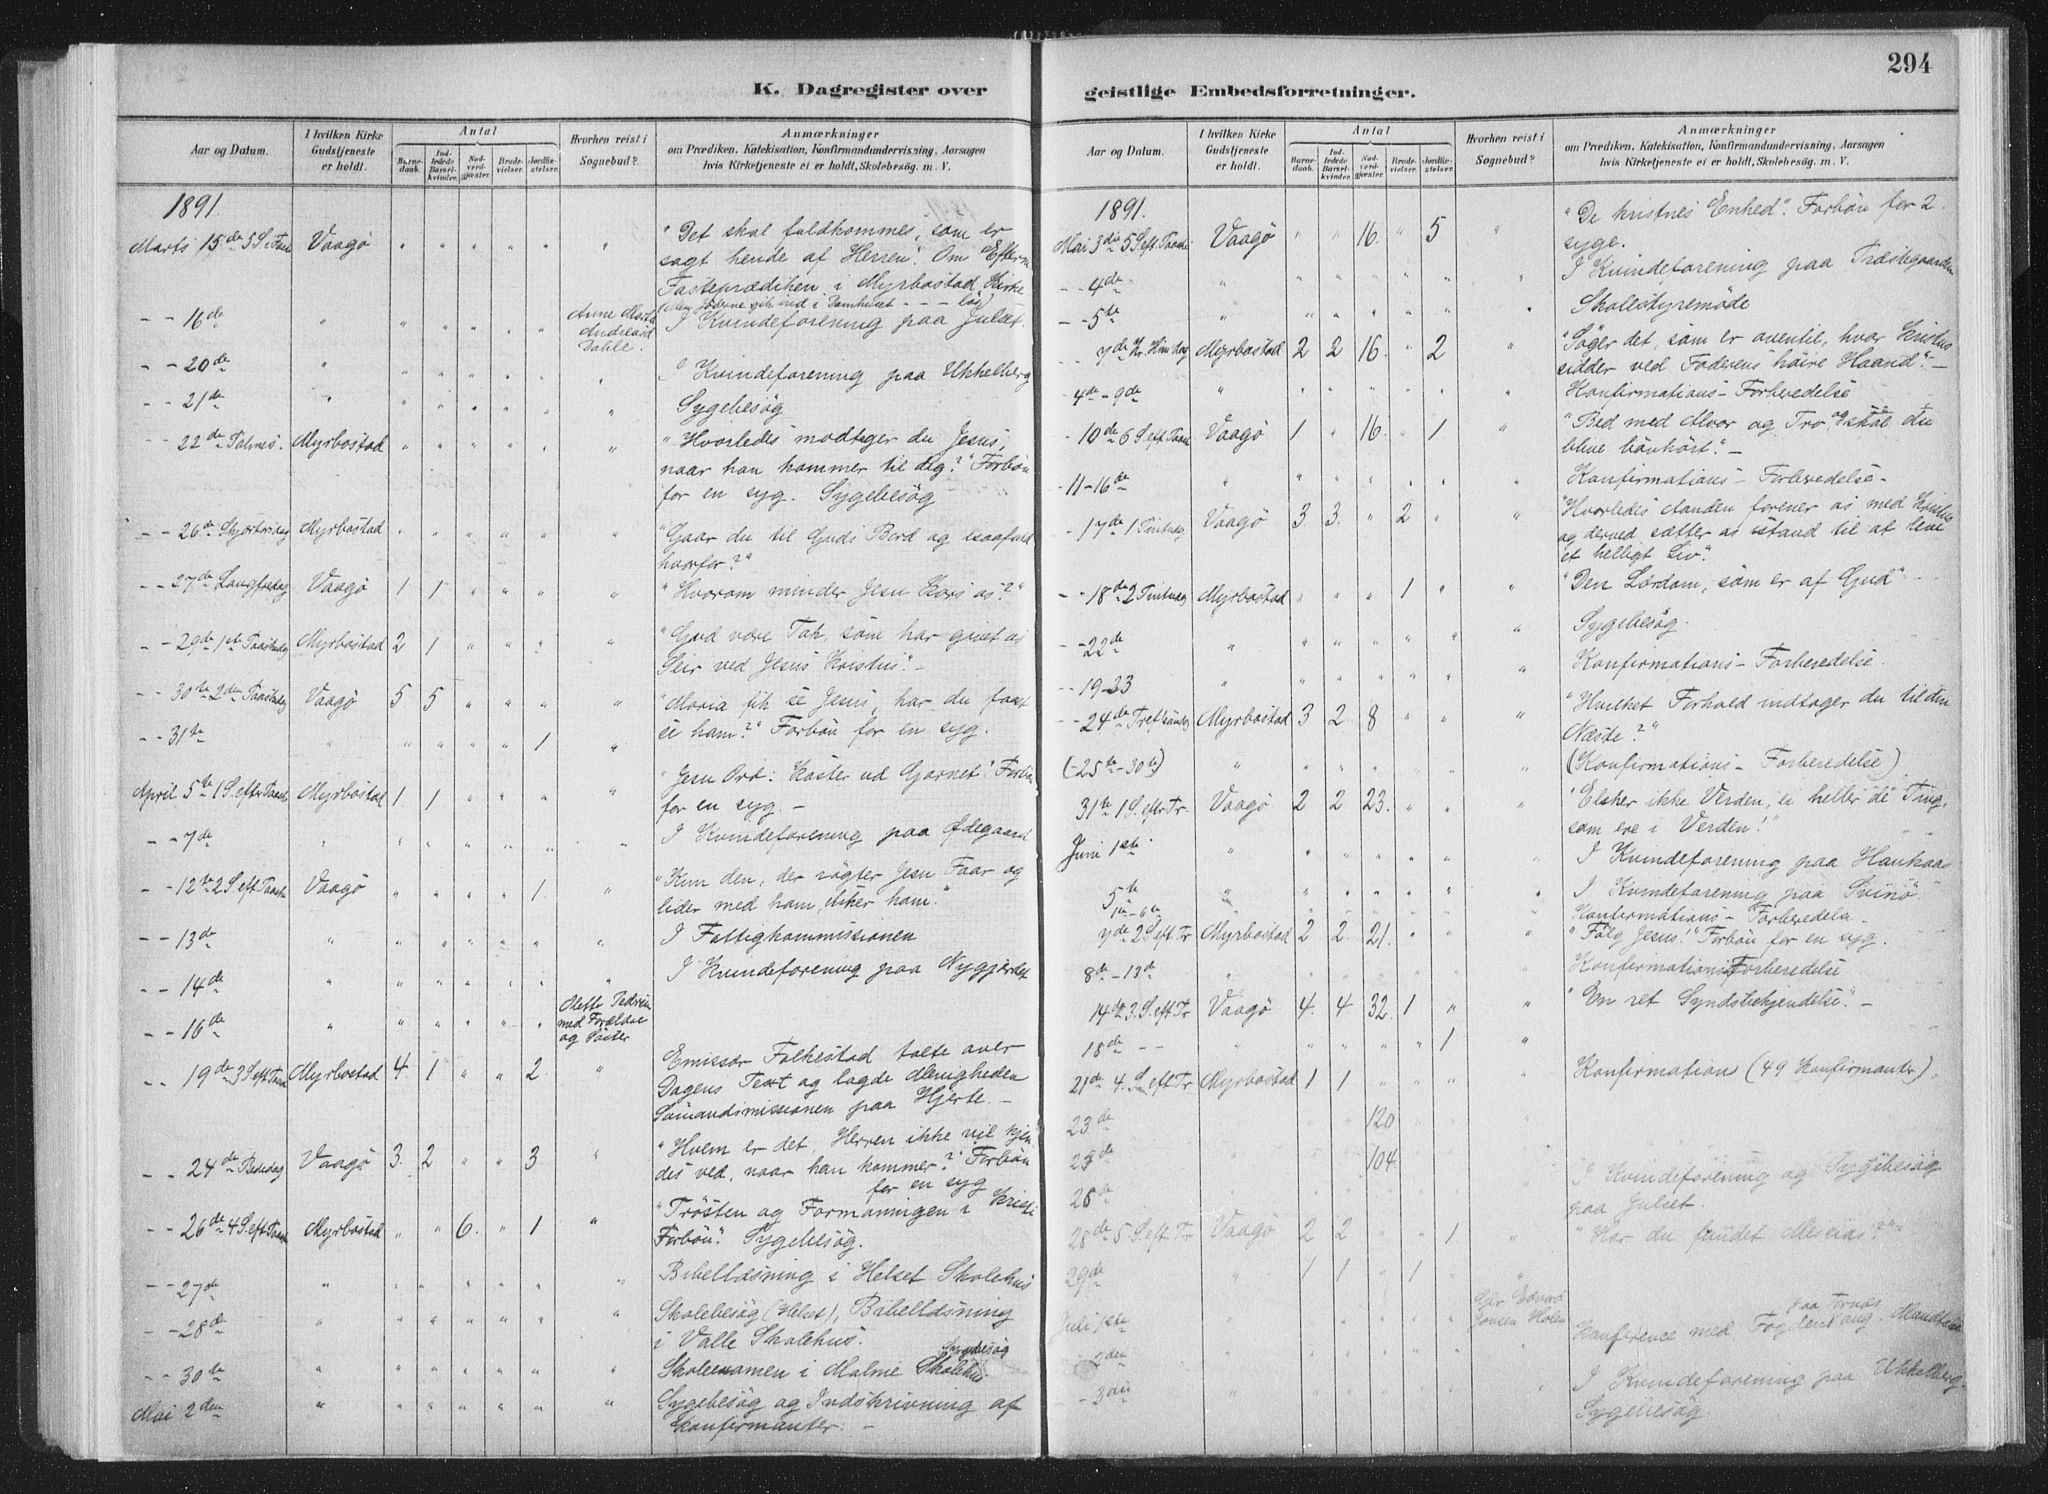 294
K. Dagregister over
geistlige Embedsforretninger.
Aar og Datum.
I hvilken Kirke Gudstjeneste er holdt.
Antal
Barne-daab.
Ind-ledede Barsel-kvinder.
Nad-verd-gjæster.
Brude-vielser.
Jordfæ-stelser.
Hvorhen reist i Sognebud?
Anmærkninger
om Prædiken, Katekisation, Konfirmandundervisning, Aarsagen
hvis Kirketjeneste ei er holdt, Skolebesøg. m. V.
1891.
Marts 15de 5 S. i Faste Vaagø " " " " " " "Det skal fuldkommes, som er
sagt hende af Herren". Om Efterm.
Fasteprædiken i Myrbostad Kirke
- - 16de " " " " " " Anne Marta Andreasd. Dahle. I Kvindeforening paa Julset.
- - 20de " " " " " " " I Kvindeforening paa Ukkelberg
- - 21de " " " " " " " Sygebesøg
- - 22de Palmes. Myrbostad " " " " " " "Hvorledes modtager du Jesus,
naar han kommer til dig?" Forbøn
for en syg. Sygebesøg
- - 26de Skjærtorsdag Myrbostad " " " " " " "Gaar du til Guds Bord og isaafald
hvorfor?"
- - 27de Langfredag Vaagø 1 1 " " " " "Hvorom minder Jesu Kors os?"
- - 29de 1ste Paaskedag Myrbostad 2 1 " " " " "Gud være Tak, som har givet os
Seir ved Jesus Kristus". -
- - 30te 2den Paaskedag Vaagø 5 5 " " " " "Maria fik se Jesus, har du faaet
- - 31te " " " " " 1 " se ham?" Forbøn for en syg.
April 5te 1 S. efter Paaske Myrbostad 1 1 " " " " "Jesu Ord: Kaster ud Garnet". Forbøn
for en syg. -
- - 7de " " " " " " " I Kvindeforening paa Ødegaard
- - 12te 2 S. eft Paaske Vaagø " " " " 1. " "Kun den, der røgter Jesu Faar og
lider med ham, elsker ham."
- - 13de " " " " " " " I Fattigkommissionen
- - 14de " " " " " " " I Kvindeforening paa Nygjerdet
- - 16de " " " " " " med Forældre og Søster
- - 19de 3 S. eft Paaske Myrbostad 4. 1 " " 2. " Emissær Falkestad talte over
Dagens Text og lagde Menigheden
Sømandsmissionen paa Hjerte. -
- - 24de Bededag Vaagø 3. 2 " " 3. " "Hvem er det, Herren ikke vil kjen-
des ved, naar han kommer?" Forbøn
for en syg
- - 26de 4 S. eft Paaske Myrbostad " " 6. " 1 " "Trøsten og Formaningen i Kristi
Forbøn". Sygebesøg.
- - 27de " " " " " " " Bibellæsning i Helset Skolehus
- - 28de " " " " " " " Skolebesøg (Helset), Bibellæsning
i Valle Skolehus.
- - 30te " " " " " " " Skoleexamen i Malme Skolehus. Sygebesøg
Mai 2den " " " " " " " Sygebesøg og Indskrivning af
Konfirmanter. -
Aar og Datum.
I hvilken Kirke Gudstjeneste er holdt.
Antal
Barne-daab.
Ind-ledede Barsel-kvinder.
Nad-verd-gjæster.
Brude-vielser.
Jordfæ-stelser.
Hvorhen reist i Sognebud?
Anmærkninger
om Prædiken, Katekisation, Konfirmandundervisning, Aarsagen
hvis Kirketjeneste ei er holdt, Skolebesøg. m. V.
1891.
Mai 3die 5 S. eft. Paaske Vaagø " " 16. " 5 " "De kristnes Enhed". Forbøn for 2
syge.
- - 4de " " " " " " " I Kvindeforening paa Præstegaarden
- - 5te " " " " " " " Skolestyremøde
- - 7de Kr. Him dag Myrbostad 2 2 16. " 2 " "Søger det, som er oventil, hvor Kristus
sidder ved Faderens høire Haand". -
4de - 9de " " " " " " " Konfirmations-Forberedelse
- 10de 6 S. eft Paaske Vaagø 1 " 16. " 1 " "Bed med Alvor og Tro, og skal du
blive bønhørt". -
- 11-16de " " " " " " " Konfirmations-Forberedelse. -
- 17de 1 Pintsedag Vaagø 3. 3. " 2 " " "Hvorledes Aanden forener os med Kristus
og derved sætter os istand til at leve
et helligt Liv".
- - 18de 2 Pintsedag Myrbostad " " " 1 " " "Den Lærdom, som er af Gud"
- - 22de " " " " " " " Sygebesøg.
- - 19-23 " " " " " " " Konfirmations-Forberedelse.
- - 24de Tref. søndag Myrbostad 3 2 8 " " " "Hvilket Forhold indtager du til din
Næste?"
(-25te - 30te) " " " " " " " (Konfirmations-Forberedelse)
31te 1 S. eftr Tr. Vaagø 2 2 23. " " " "Elsker ikke Verden, ei heller de Ting,
som ere i Verden!"
Juni 1ste " " " " " " " I Kvindeforening paa Haukaas
5te " " " " " " " I Kvindeforening paa Svinø
1ste - 6te Konfirmations-Forberedelse
7de 2 S. eft Tr Myrbostad 2 2. 21. " " " "Følg Jesus!" Forbøn for en syg.
8de - 13de " " " " " " " Konfirmations-Forberedelse
14de 3. S. eft Tr Vaagø 4. 4 32. 1 " " "En ret Syndsbekjendelse". -
18de - - " " " " " 1 "
21de 4. S. eft Tr Myrbostad 1 1 " " " Konfirmation (49 Konfirmanter).
23de " " 120
25de " 104.
26de I Kvindeforening og Sygebesøg
paa Julset.
28de 5 S. eft. Tr Vaagø 2 2 " " 1 " "Har du fundet Messias?"
29de " 1 1 " 1 "
Juli 1ste " " " " " Edvard Jonsen Holen Konference med Fogden ang. Mandtal paa Tornæs
2den
- 3die " I Kvindeforening paa Ukkelberg.
Sygebesøg